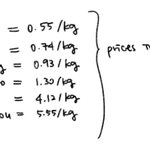 = 0.55/kg
= 0.74/kg
= 0.93/kg
= 1.30/kg
= 4.12/kg
= 5.55/kg
prices